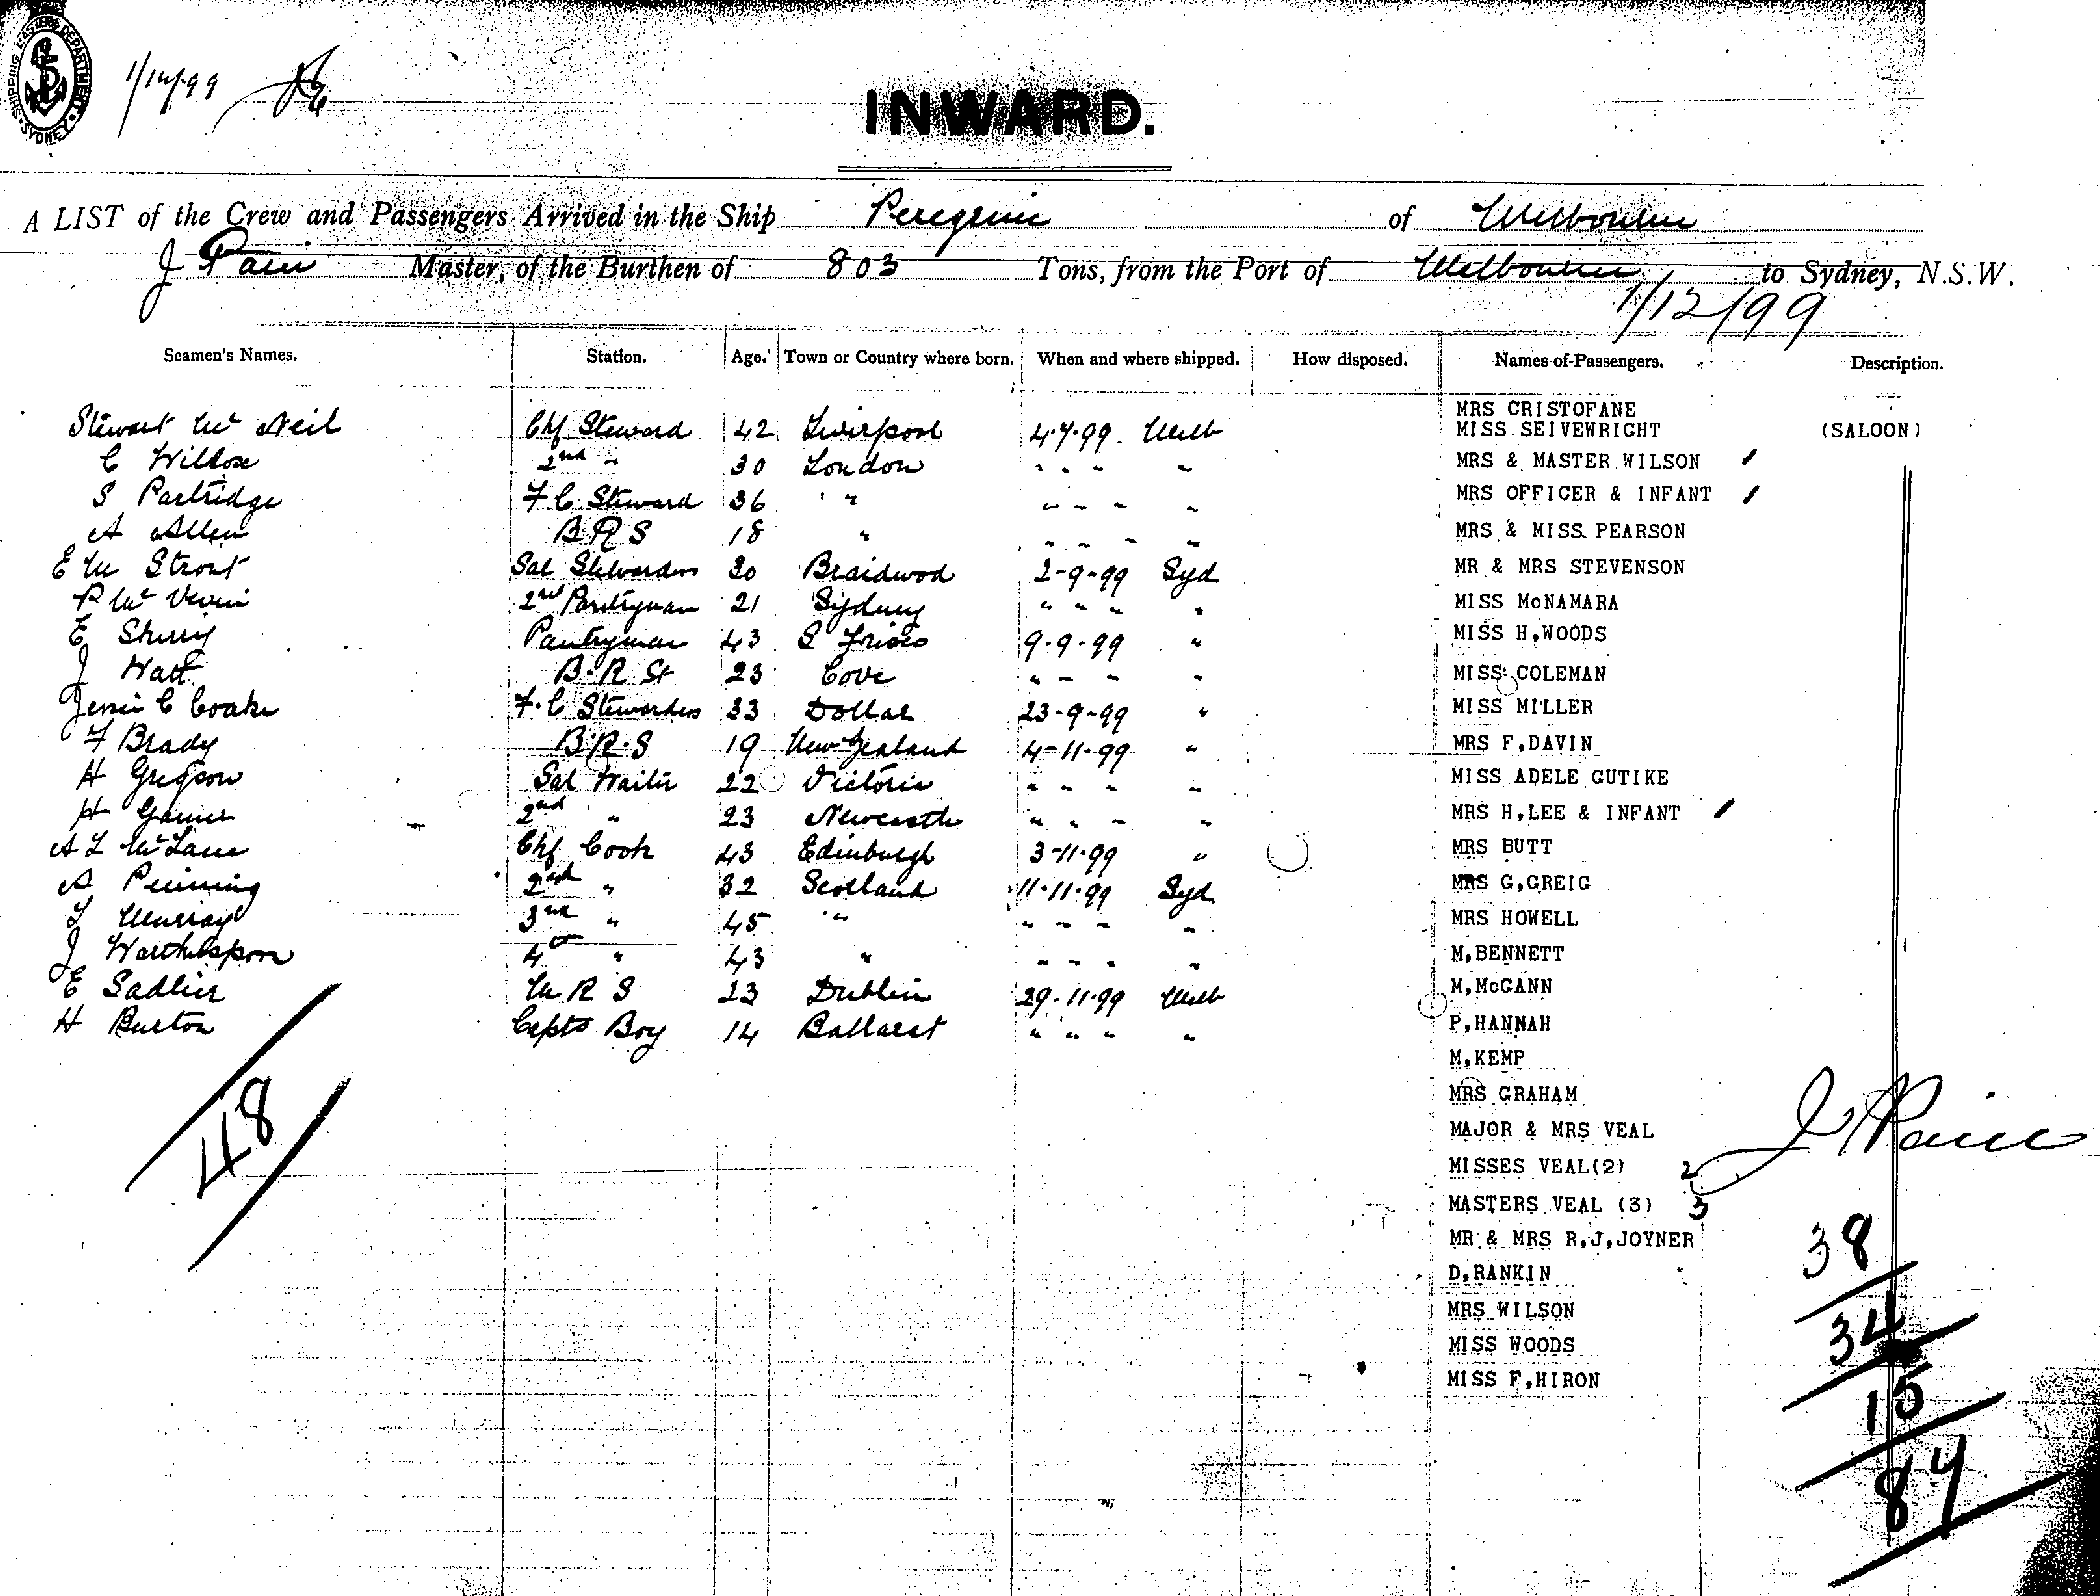 SHIPPING MASTERS DEPARTMENT
SYDNEY
1/12/99
INWARD.
A LIST of the Crew and Passengers Arrived in the Ship Peregrine of Melbourne
J Pain Master, of the Burthen of 803 Tons, from the Port of Melbourne to Sydney, N.S.W.
1/12/99
Seamen's Names. Station. Age. Town or Country where born. When and where shipped. How disposed. Names of Passengers. Description.
MRS CRISTOFANE
Stewart Mc Neil Chf Steward 42 Liverpool 4.7.99. Melb MISS SEIVEWRIGHT (SALOON)
C Willox 2nd " 30 London " " " " MRS & MASTER WILSON
S Partridge F C Steward 36 " " " " " MRS OFFICER & INFANT
A Allen B R S 18 " " " " " MRS & MISS PEARSON
E M Strout Sal Stewardess 30 Braidwod 2-9-99 Syd MR & MRS STEVENSON
P Mc 2nd Pantryman 21 Sydney " " " " MISS McNAMARA
E Sherry Pantryman 43 S Frisco 9.9.99 " MISS H,WOODS
J Watt B.R St 23 Cove " " " " MISS COLEMAN
Jessie C Coake F.C Stewardess 33 Dollar 23-9-99 " MISS MILLER
F Brady B.R.S 19 New Zealand 4-11-99 " MRS F,DAVIN
H Gregson Sal Waiter 22 Victoria " " " " MISS ADELE GUTIKE
H 2nd " 23 Newcastle " " " " MRS H,LEE & INFANT
A L McLane Chf Cook 43 Edinburgh 3-11-99 " MRS BUTT
A 2nd " 32 Scotland 11-11-99 Syd MRS G,GREIG
T Murray 3rd " 45 " " " " " MRS HOWELL
J 4th " 43 " " " " " M,BENNETT
E Sadlier M R S 23 Dublin 29.11.99 Melb M,McGANN
H Burton Capts Boy 14 Ballarat " " " " P,HANNAH
M,KEMP
48
MRS GRAHAM
MAJOR & MRS VEAL J Pain
MISSES VEAL(2) 2
MASTERS VEAL (3) 3
MR & MRS R,J,JOYNER 38
D,RANKIN
MRS WILSON
34
MISS WOODS
MISS F,HIRON
15
87